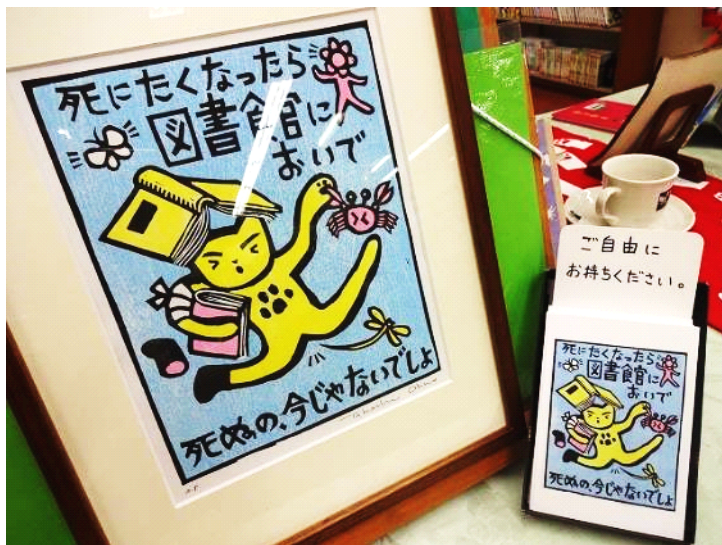 死にたくなったら
図書館に
おいで
死ぬの、今じゃないでしょ
ご自由に
お持ちください。
死にたくなったら
図書館に
おいで
死ぬの、今じゃないでしょ